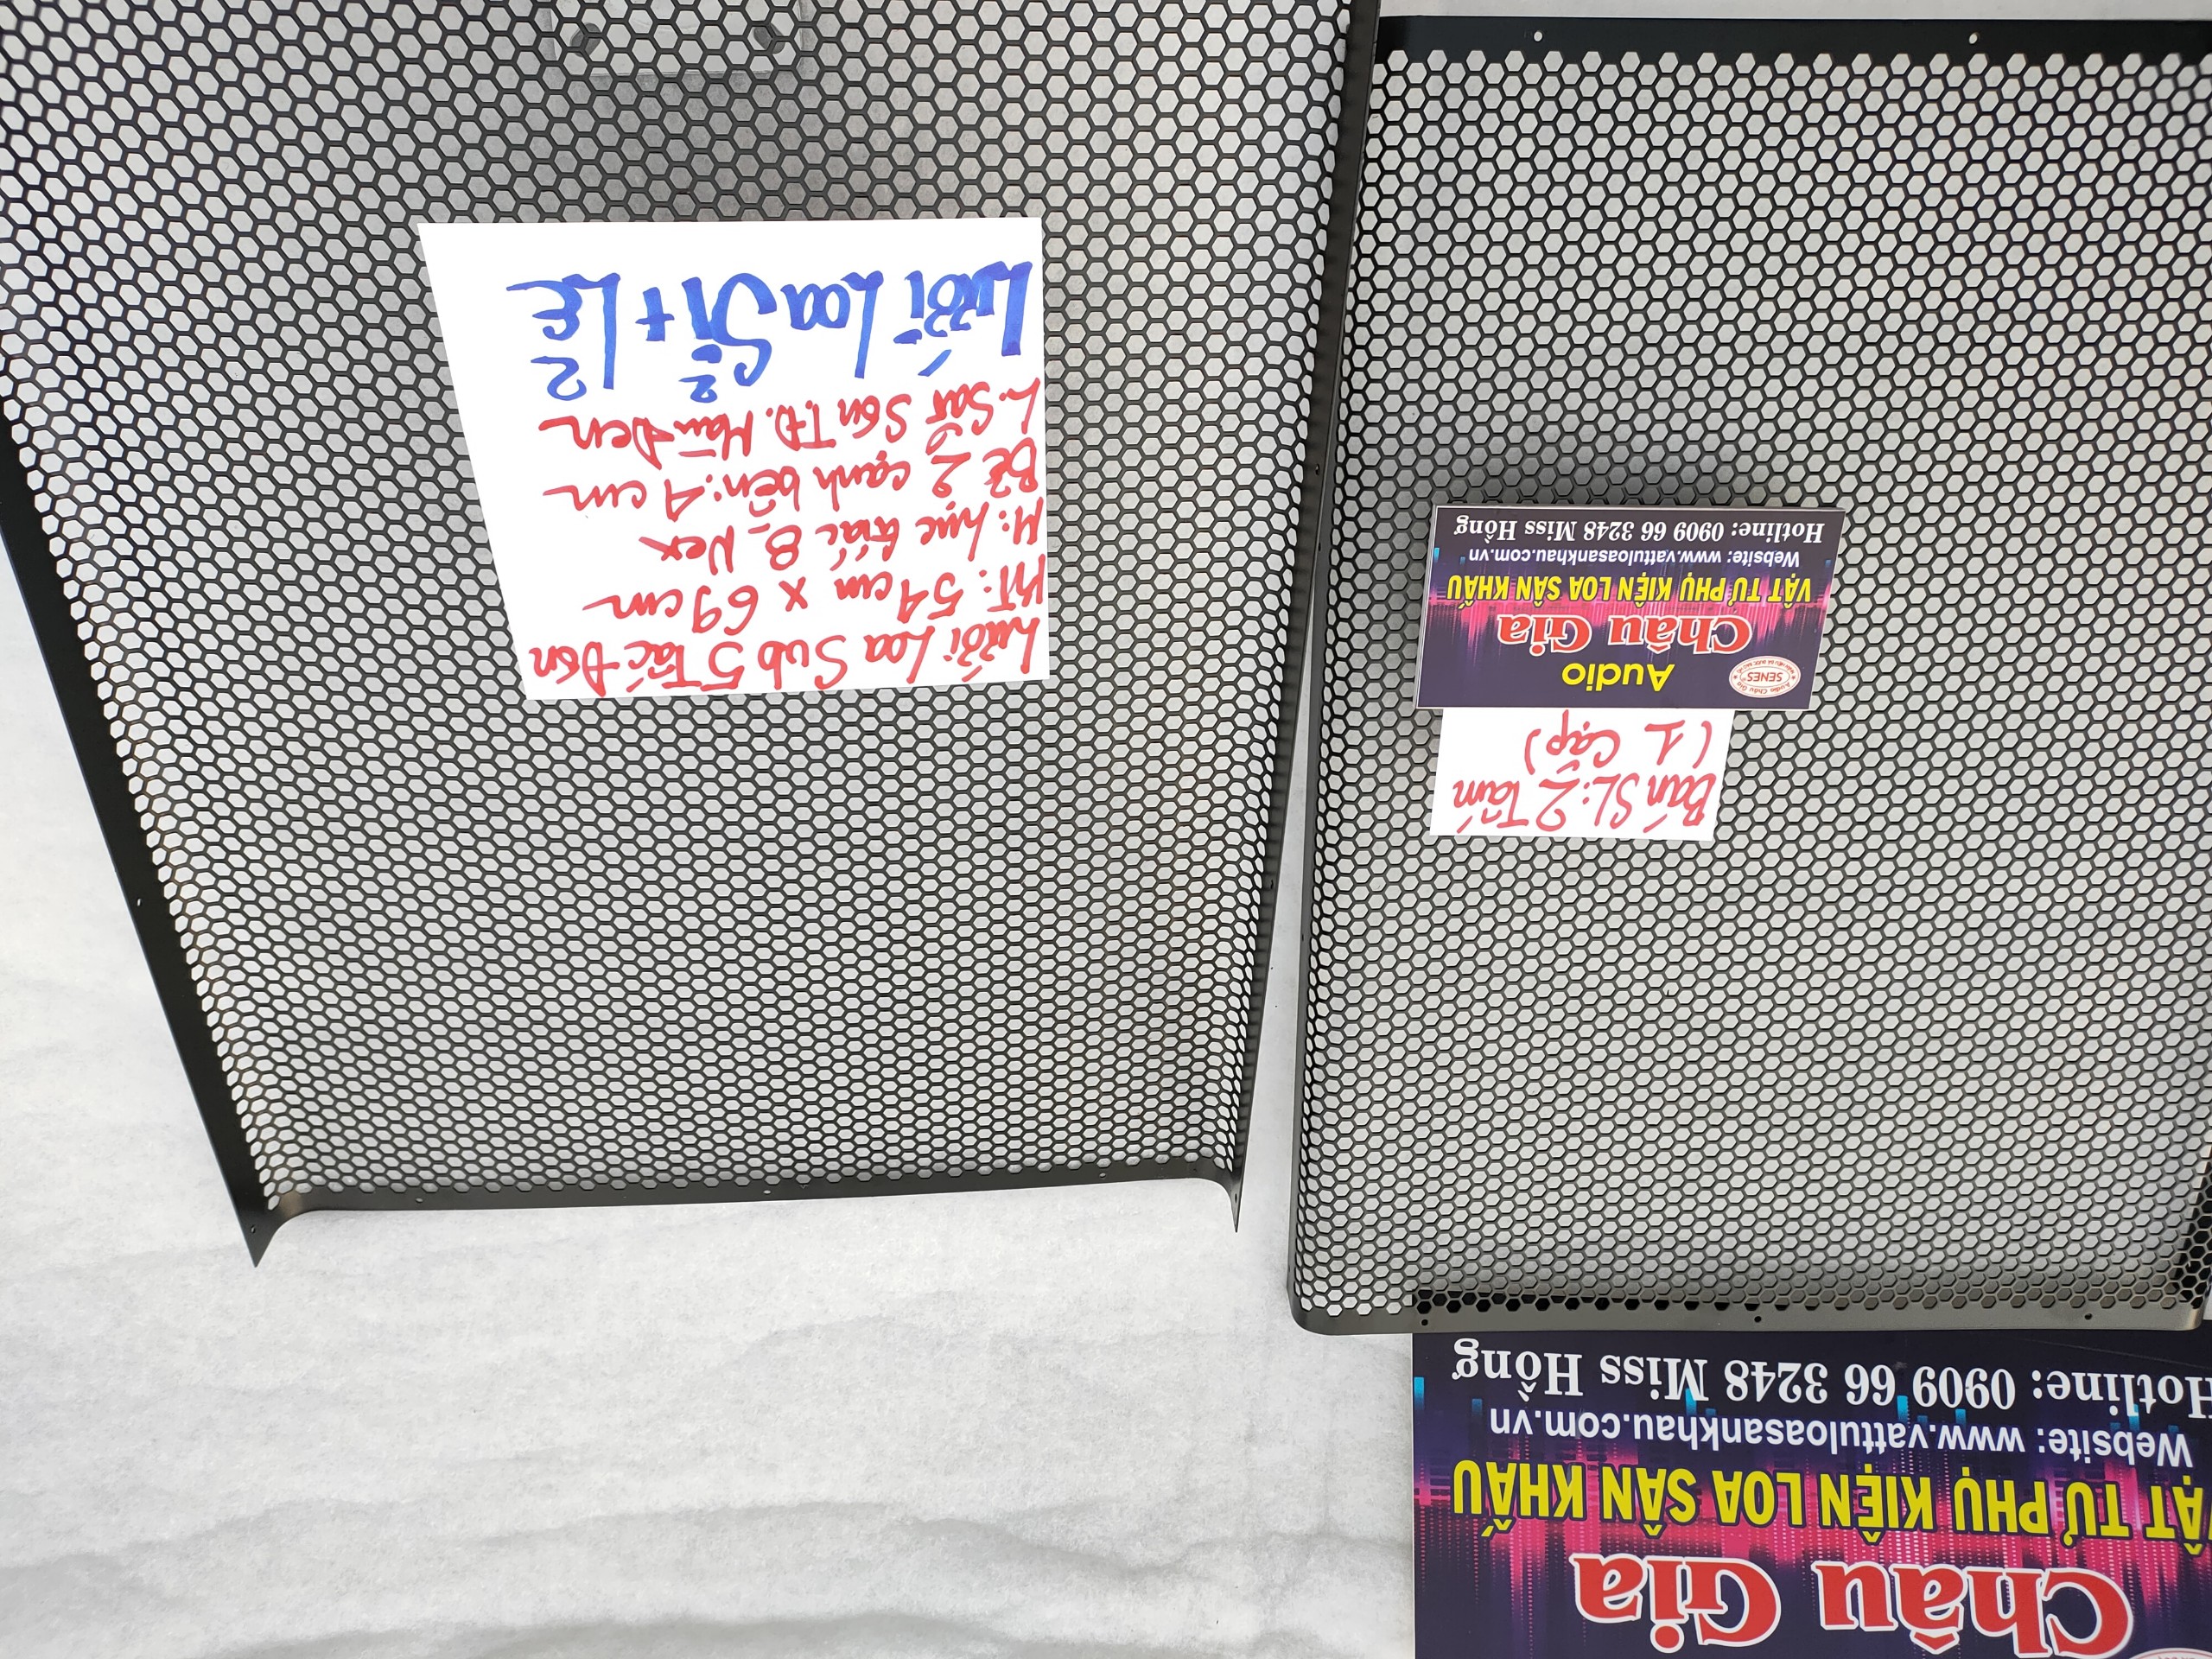 Lưới Loa Sub 5 Tấc Đơn
KT: 54 cm x 69 cm
M: lục giác 8_Nex
Bẻ 2 cạnh bên: 4 cm
L. Sắt Sơn T.Đ. Màu Đen
Lưới Loa Sỉ + Lẻ
Bán SL: 2 Tấm
(1 Cặp)
SENES
Audio
Châu Gia
VẬT TƯ PHỤ KIỆN LOA SÂN KHẤU
Website: www.vattuloasankhau.com.vn
Hotline: 0909 66 3248 Miss Hồng
Châu Gia
VẬT TƯ PHỤ KIỆN LOA SÂN KHẤU
Website: www.vattuloasankhau.com.vn
Hotline: 0909 66 3248 Miss Hồng